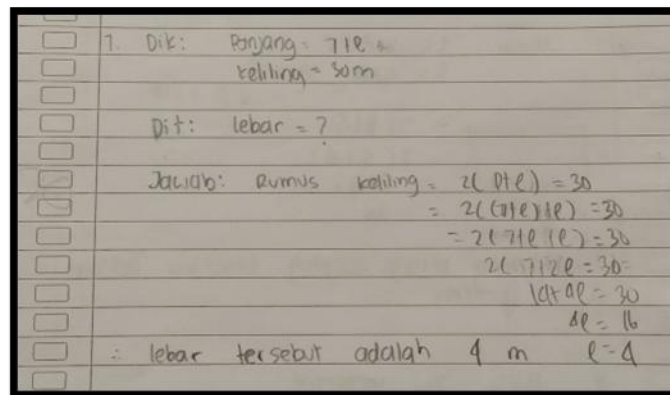 7. Dik: Panjang = 7+l
keliling = 30m
Dit: lebar = ?
Jawab: Rumus keliling = 2(p+l) = 30
= 2((7+l)+l) = 30
= 2(7+l+l) = 30
2(7+2l = 30
14+4l = 30
4l = 16
∴ lebar tersebut adalah 4 m l = 4